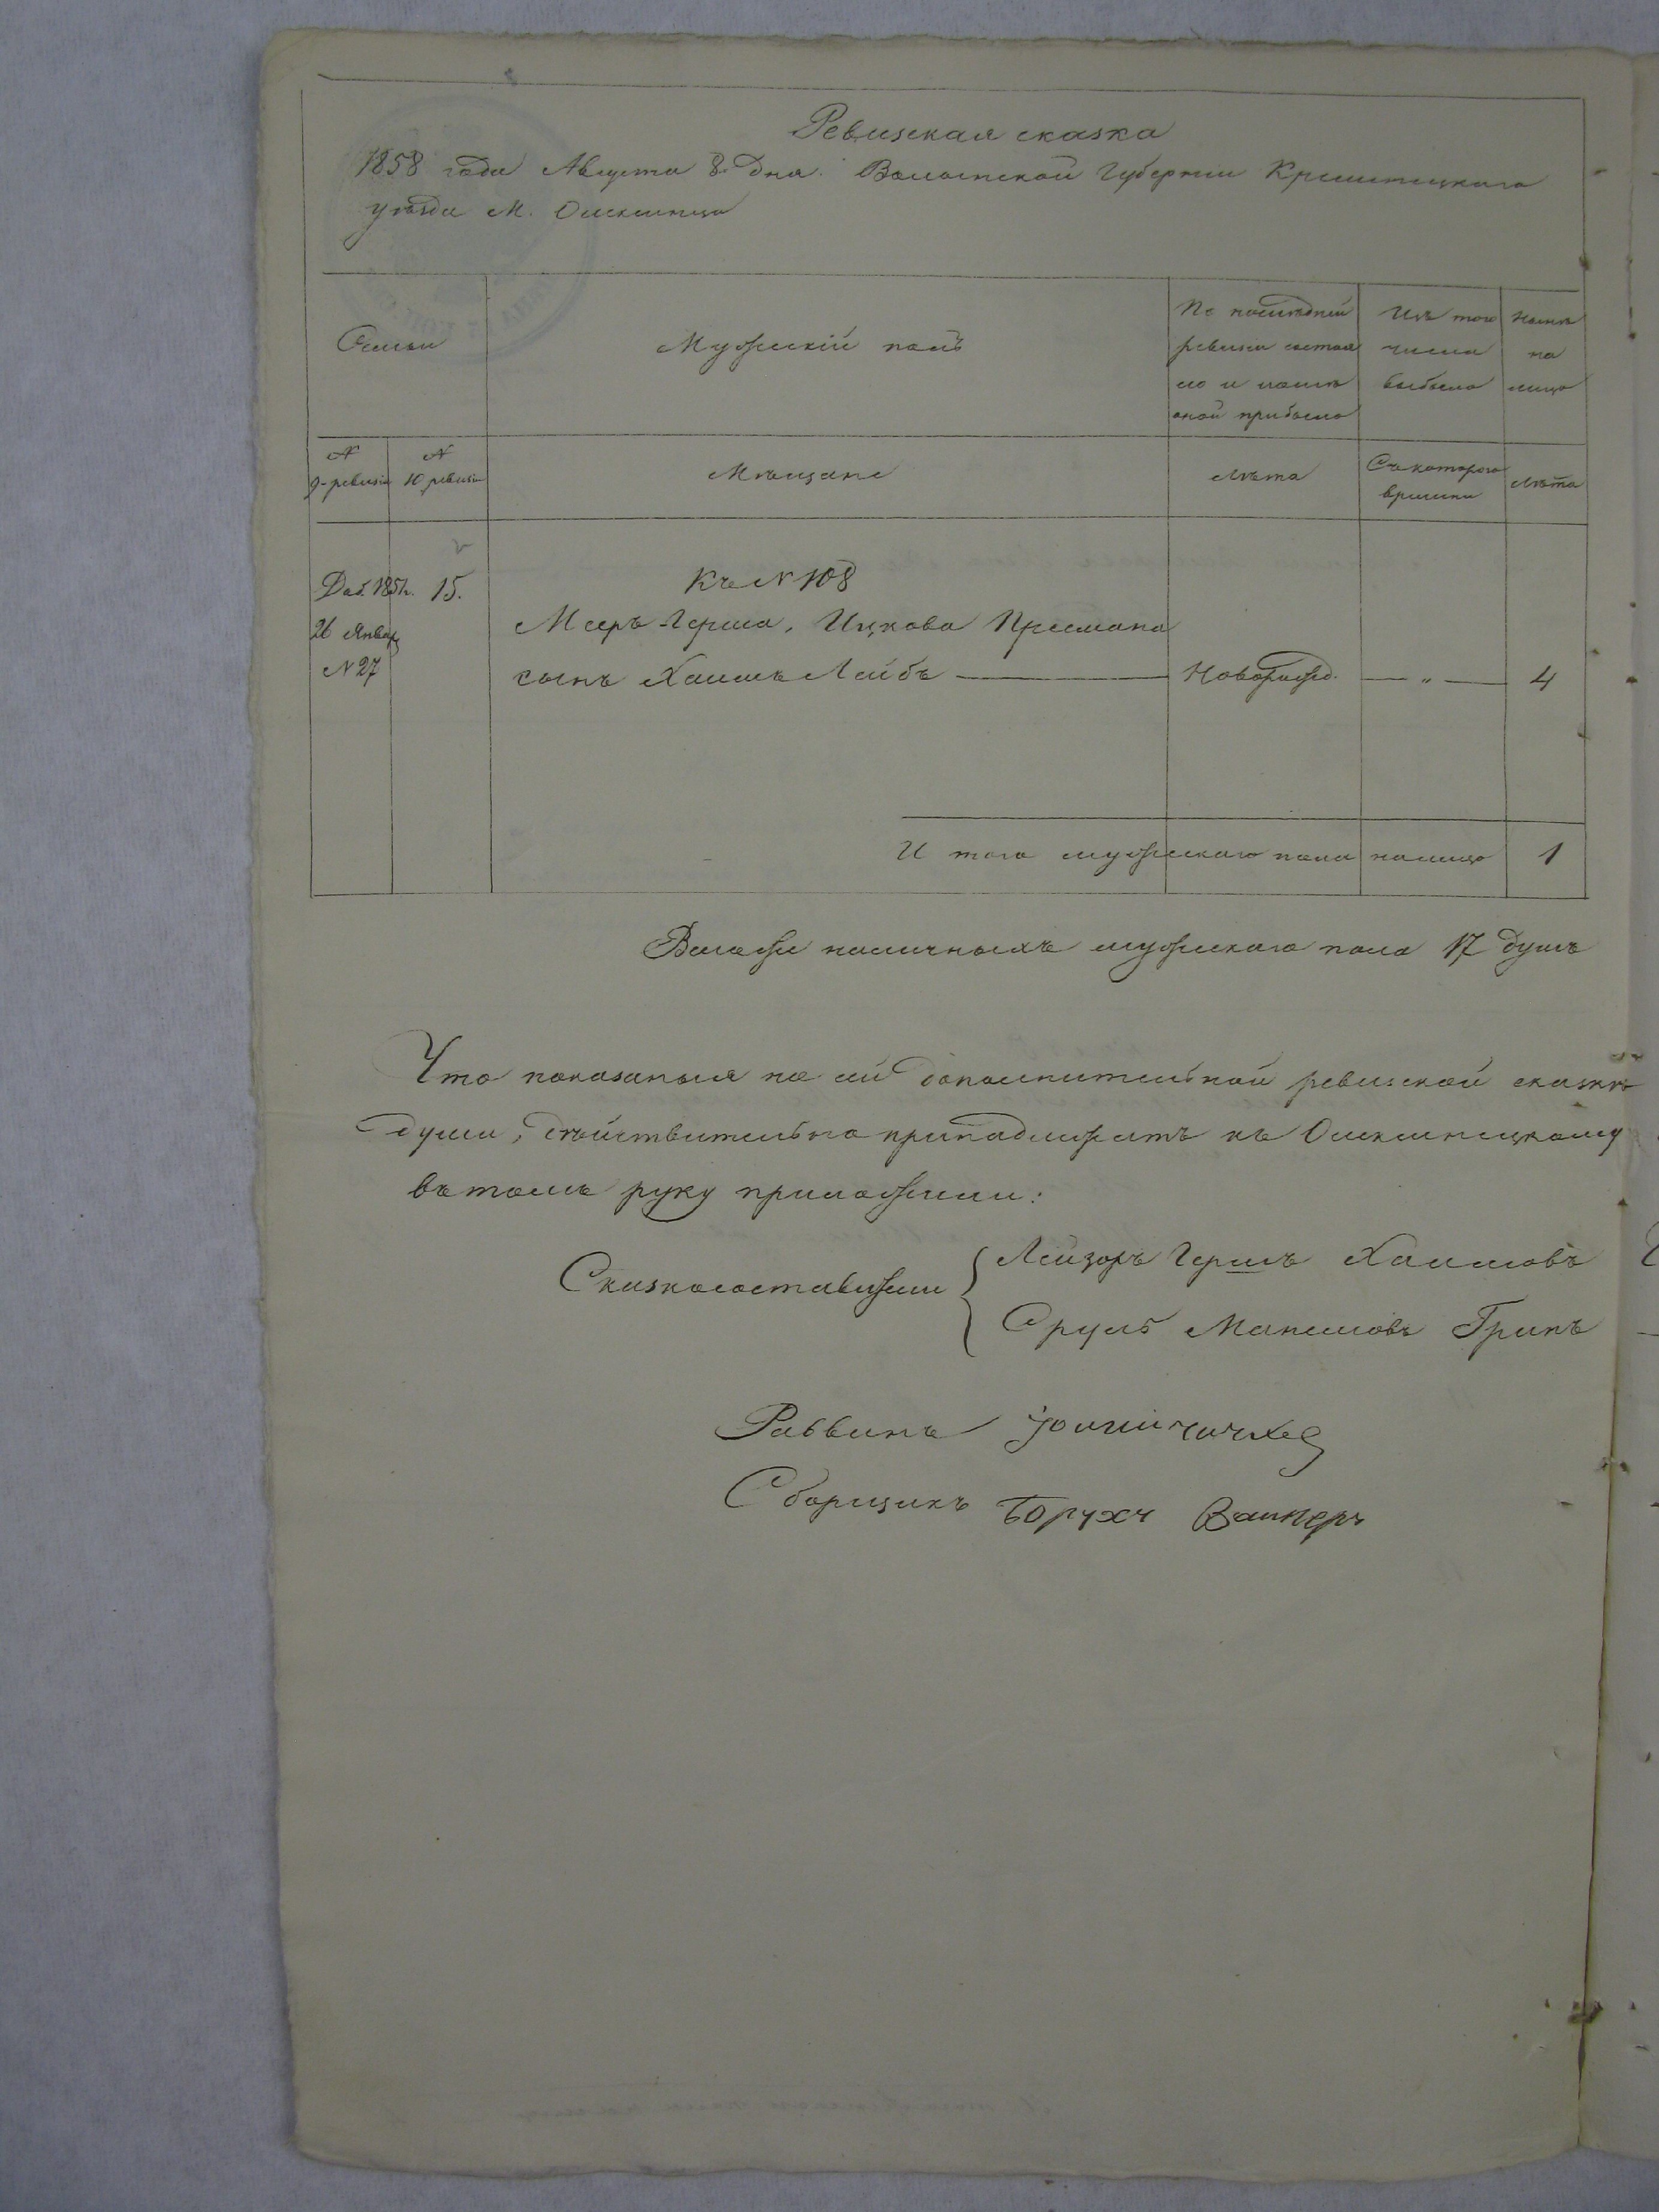 Ревизская сказка
1858 года Августа 8 дня. Волынской Губернии Кременецкаго
уезда М. Олексинца
Семьи
Мужескій полъ
По последней
ревизи состоя
ло и после
оной прибыло
Изъ того
числа
выбыло
Ныне
на
лицо
№
9-ревизіи
№
10 ревизіи
Мѣщане
лѣта
Съ котораго
времени
лѣта
Доб. 1857г.
26 Январ
№ 27
15.
Къ № 108
Меер-Герша, Ицкова Пресмана
сынъ Хаимъ Лейбъ
Новорожд.
— „ —
4
И того мужескаго пола налицо 1
Всего же наличныхъ мужескаго пола 17 душъ
Что показаныя по сей дополнительной ревизской сказке
души, действительно принадлежатъ къ Олексинецкому
въ томъ руку приложили:
Сказкосоставители
Лейзоръ Гершъ Хаимовъ
Сруль Манелювъ Гринъ
Раввинъ
Сборщикъ Борухъ Вайнеръ